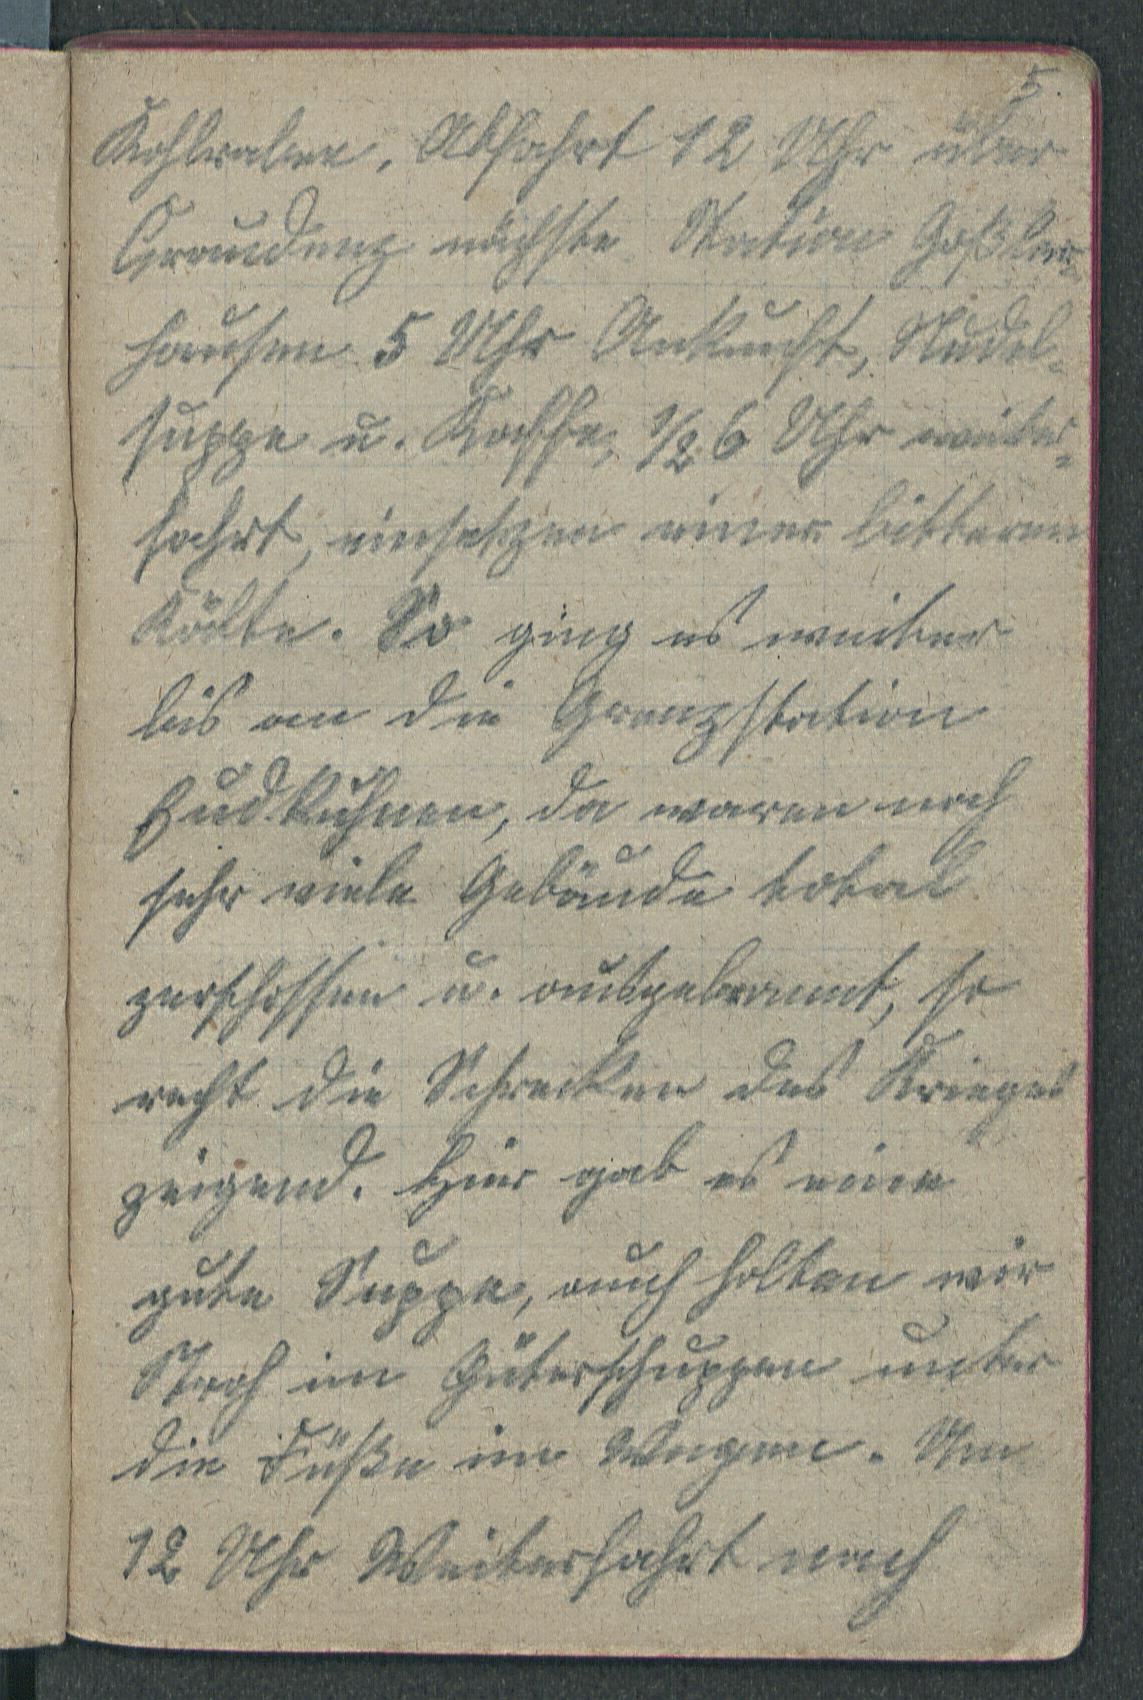 5.
Kohlraben, Abfahrt 12 Uhr über
Graudenz nächste Station Goßlers-
hausen 5 Uhr Ankunft, Nudel-
suppe u. Kaffee, 1/2 6 Uhr weiter-
fahrt, einsetzen einer bitteren
Kälte. So ging es weiter
bis an die Grenzstation
Eudkuhnen, da waren noch
sehr viele Gebäude total
zerschossen u. ausgebrannt, so
recht die Schrecken des Krieges
zeigend. Hier gab es eine
gute Suppe, auch holten wir
Stroh im Güterschuppen unter
die Füße im Wagen. Um
12 Uhr Weiterfahrt nach